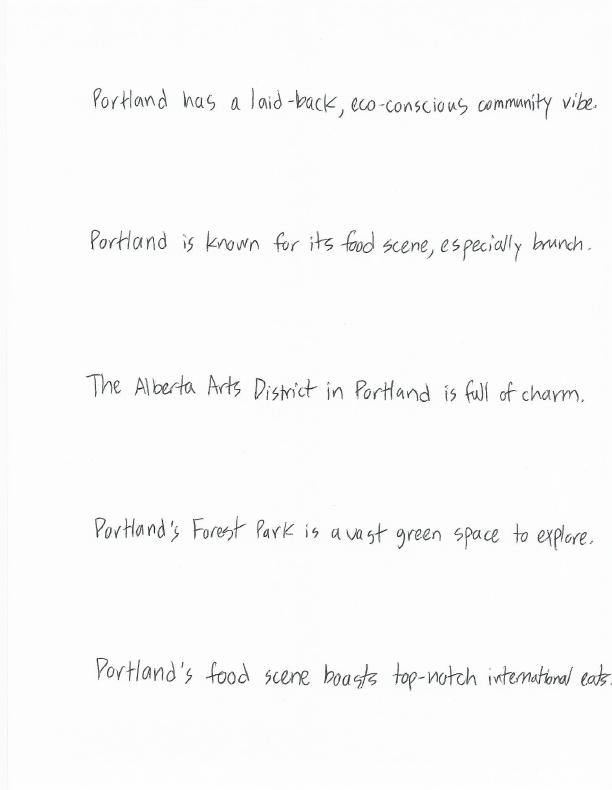 Portland has a laid-back, eco-conscious community vibe.
Portland is known for its food scene, especially brunch.
The Alberta Arts District in Portland is full of charm.
Portland's Forest Park is a vast green space to explore.
Portland's food scene boasts top-notch international eats.